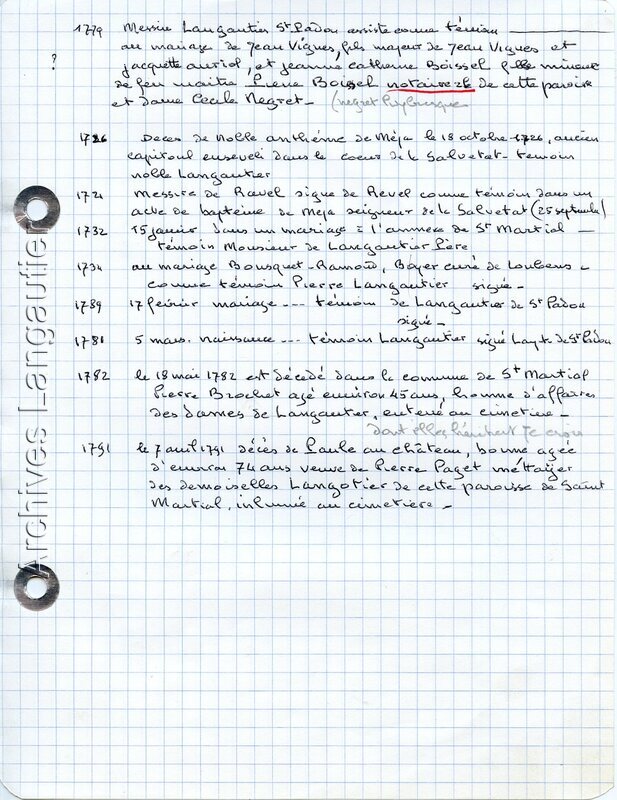 1779 Messire Langautier St Padou assiste comme témoin
? au mariage de Jean Vignes, fils majeur de Jean Vignes et
jacquette auriol, et jeanne catherine Boissel fille mineure
de feu maitre Pierre Boissel notaire de cette paroisse
et dame Cecile Negret - (negret
1726 Deces de noble anthème de Méja le 18 octobre 1726, ancien
capitoul enseveli dans le coeur de la Salvetat - temoin
noble Langautier
1721 Messire de Ravel signe de Revel comme témoin dans un
acte de baptème de Meja seigneur de la Salvetat (25 septembre)
1732 15 janvier dans un mariage à l'annexe de St Martial -
témoin Monsieur de Langautier Père
1734 au mariage Bousquet-Ramond, Boyer curé de Loubens -
comme témoin Pierre Langautier signé -
1789 17 février mariage --- témoin de Langautier de St Padou
signé -
1781 5 mars. naissance --- témoin Langautier signé Langt. de St Padou
1782 le 18 mai 1782 est décédé dans la commune de St Martial
Pierre Brochet agé environ 45 ans, homme d'affaires
des dames de Langautier, enterré au cimetière -
dont elles héritent je crois
1791 le 7 avril 1791 décès de Paule au château, bonne agée
d'environ 74 ans veuve de Pierre Paget métayer
des demoiselles Langotier de cette paroisse de Saint
Martial, inhumée au cimetière -
Archives Langautier